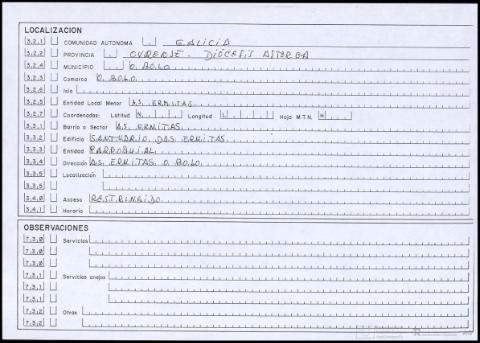 LOCALIZACION
3.2.1 COMUNIDAD AUTONOMA GALICIA
3.2.2 PROVINCIA OURENSE - DIÓCESIS ASTORGA
3.2.4 MUNICIPIO O BOLO
3.2.3 Comarca O BOLO
3.2.6 Isla
3.2.5 Entidad Local Menor AS ERMITAS
3.2.7 Coordenadas: Latitud N Longitud Hoja M.T.N. H
3.3.1 Barrio o Sector AS ERMITAS
3.3.2 Edificio SANTUARIO DAS ERMITAS
3.3.3 Entidad PARROQUIAL
3.3.4 Dirección AS ERMITAS O BOLO
3.3.5 Localización
3.3.5
3.4.0 Acceso RESTRINGIDO
3.4.1 Horario
OBSERVACIONES
7.3.0 Servicios
7.3.0
7.3.0
7.3.1 Servicios anejos
7.3.1
7.3.1
7.3.2 Otros
7.3.2